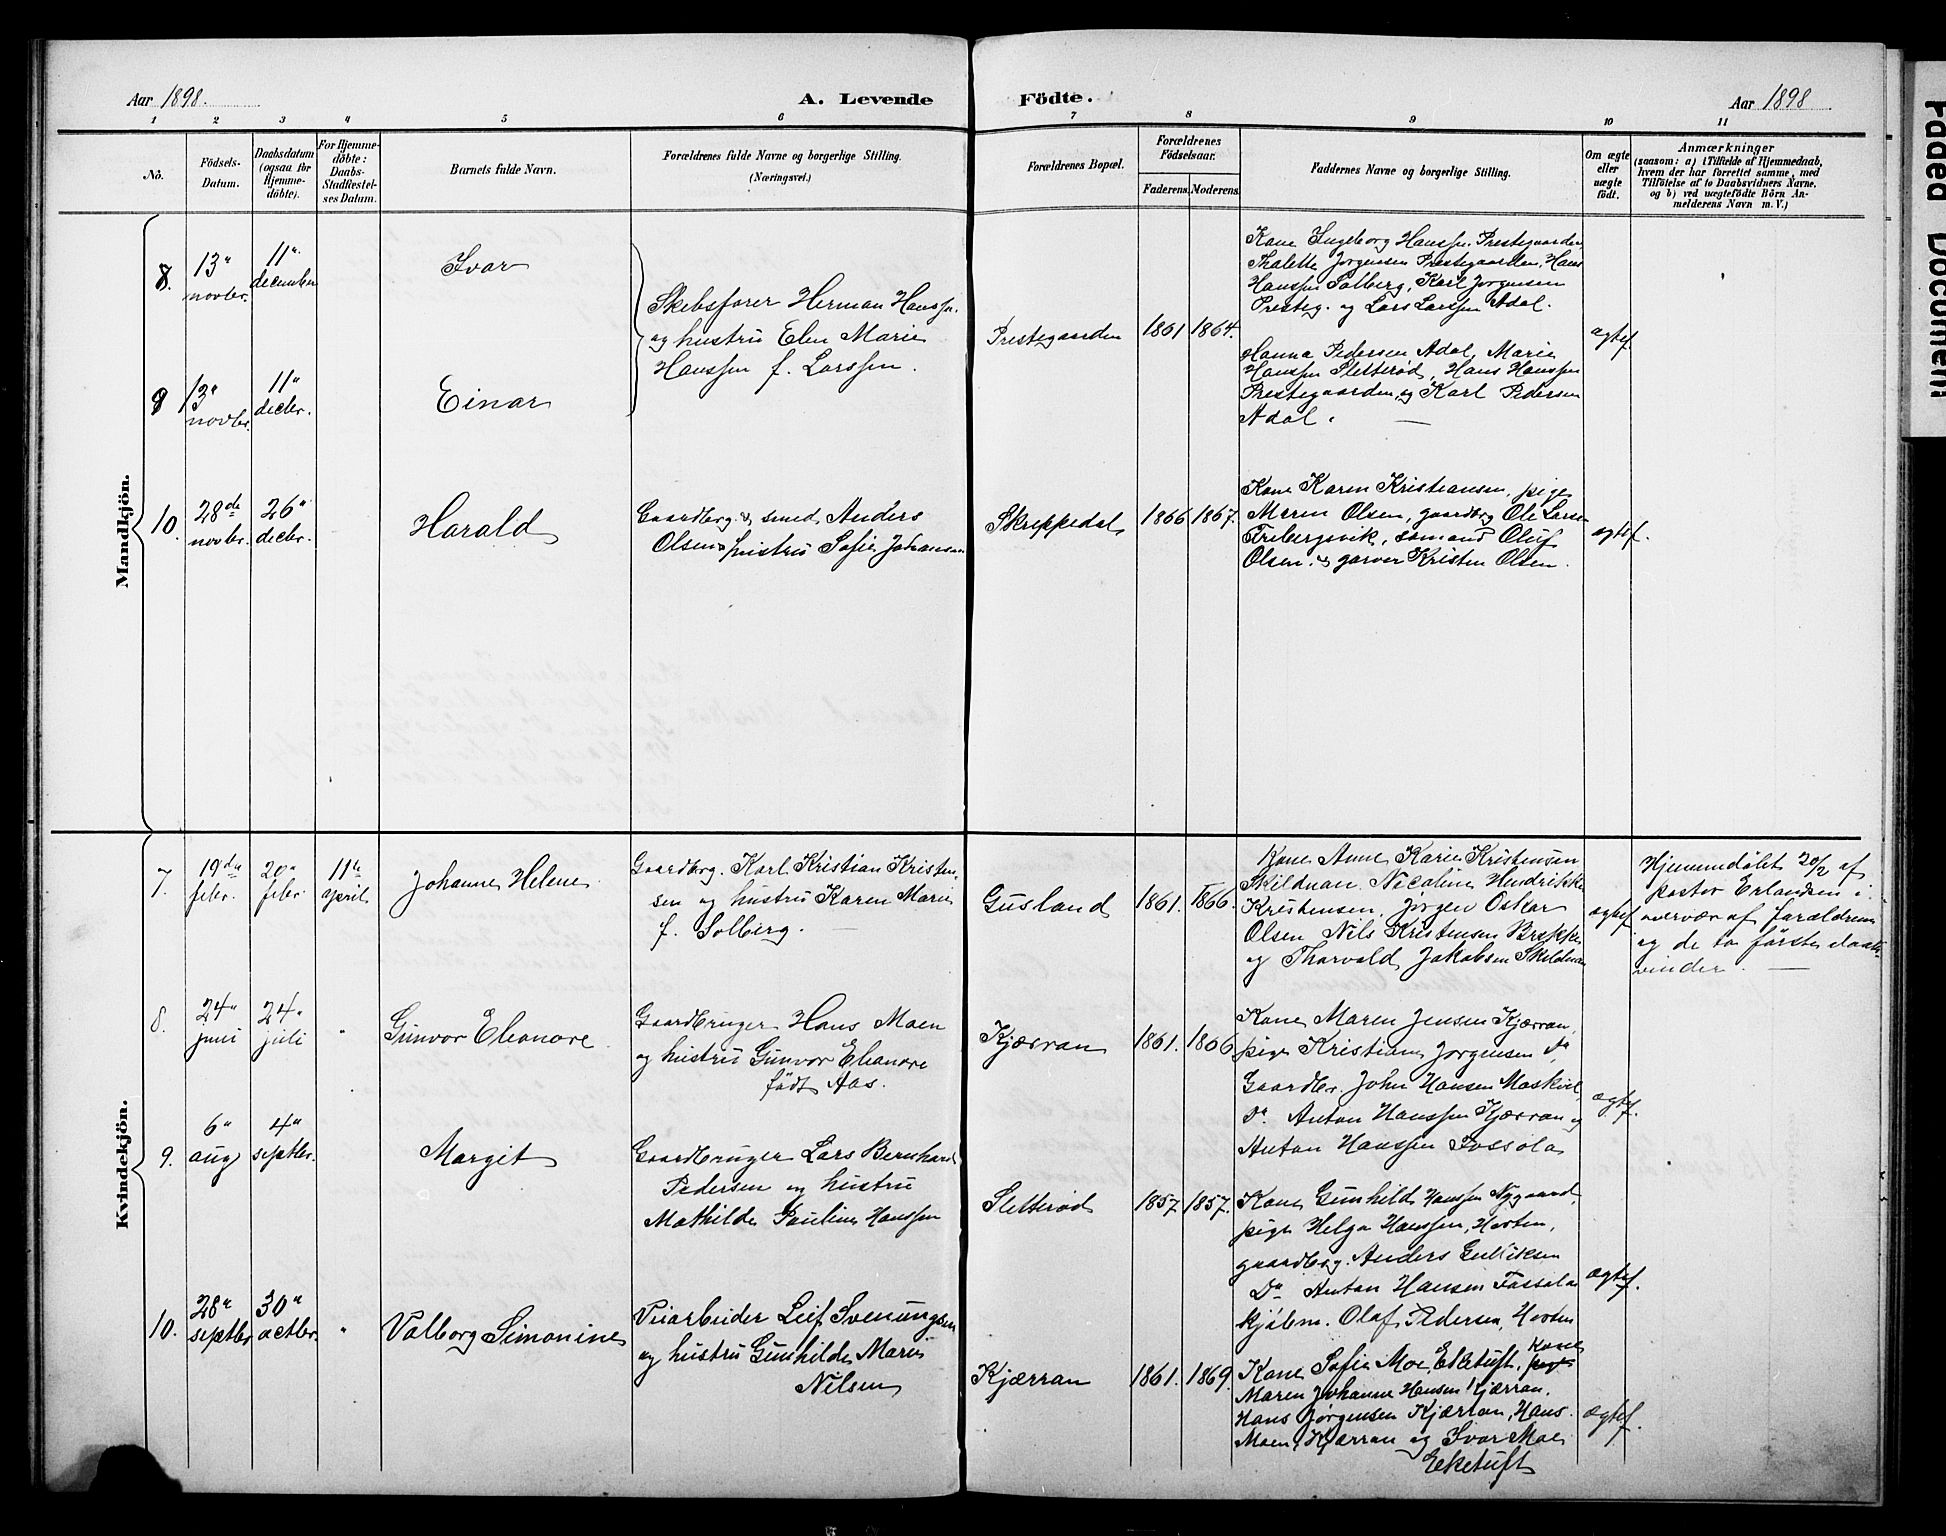 Aar 1898.
A. Levende Födte.
Aar 1898
1 2 3 4 5 6 7 8 9 10 11
No.
Födsels-
Datum.
Daabsdatum
(ogsaa for
Hjemme-
döbte).
For Hjemme-
döbte:
Daabs-
Stadfæstel-
ses Datum.
Barnets fulde Navn.
Forældrenes fulde Navne og borgerlige Stilling.
(Næringsvei.)
Forældrenes Bopæl.
Forældrenes
Födselsaar.
Faderens. Moderens.
Faddernes Navne og borgerlige Stilling.
Om ægte
eller
uægte
födt.
Anmærkninger
(saasom: a) i Tilfælde af Hjemmedaab,
hvem der har forrettet samme, med
Tilföielse af to Daabsvidners Navne,
og b) ved uægtefödte Börn An-
melderens Navn m. V.)
Mandkjön.
8.
13"
novbr.
11"
december
Ivar
Skibsfører Herman Hanssn.
og hustru Elen Marie
Hanssen f. Larssen.
Prestegaarden
1861 1864.
Kone Ingeborg Hanssn. Prestegaarden
Thalette Jørgensen Prestegaarden, Hans
Hanssen Solberg, Karl Jørgensen
Presteg. og Lars Larssen Adal.
ægtef.
9
13"
novbr.
11"
decbr.
Einar
Hanna Pedersen Adal, Marie
Hanssen Sletterød, Hans Hanssen
Prestegaarden, og Karl Pedersen
Adal.
10.
28de
novbr.
26"
decbr.
Harald
Gaardbrg. & smed Anders
Olsen & hustru Sofie Johansen
Skreppedal
1866 1867.
Kone Karen Kristiansen, pige
Maren Olsen, gaardbrg Ole Larsen
Fribergsvik, sømand Oluf
Olsen. & garver Kristen Olsen.
ægtef.
Kvindekjön.
7.
19de
febr.
20"
febr.
11te
april
Johanne Helene
Gaardbrg. Karl Kristian Kristen-
sen og hustru Karen Marie
f. Solberg.
Gusland
1861. 1866.
Kone Anne Karie Kristensen
Skildnan. Nicoline Hendrikke
Kristensen, Jørgen Oskar
Olsen Nils Kristensen Brekke
og Tharvald Jakobsen Skildnan
ægtef.
Hjemmedøbt 20/2 af
pastor Erlandsen i
nærvær af forældrene
og de to første daabs-
vidner.
8.
24"
juni
24"
juli
"
Gunvor Eleonore.
Gaardbruger Hans Moen
og hustru Gunvor Eleanore
født Aas.
Kjærran
1861. 1866
Kone Maren Jensen Kjærran,
pige Kristiane Jørgensen Do.
Gaardbr. John Hansen Maskvil
Do. Anton Hanssen Kjærran og
Anton Hanssen Fossola
ægtef.
9.
6"
aug
4"
septbr.
Margit
Gaardbruger Lars Bernhard
Pedersen og hustru
Mathilde Pauline Hanssen
Sletterød
1857 1857.
Kone Gunhild Hanssen Nygaard,
pige Helga Hanssen, Horten,
gaardbrg. Anders Gulliksen
Do. Anton Hansen Fassola
kjøbm. Olaf Pedersen, Horten
ægtef.
10.
28"
septbr
30"
octbr.
"
Valborg Simonine
Veiarbeider Leif Svenungsen
og hustru Gunhilde Marie
Nilsen
Kjærran
1861. 1869.
Kone Sofie Moe, Eketuft, Kone
Maren Johanne Hansen Kjærran.
Hans Jørgensen Kjærran, Hans
Moen, Kjærran og Ivar Moe
Eeketuft
ægtef.
Faded Document